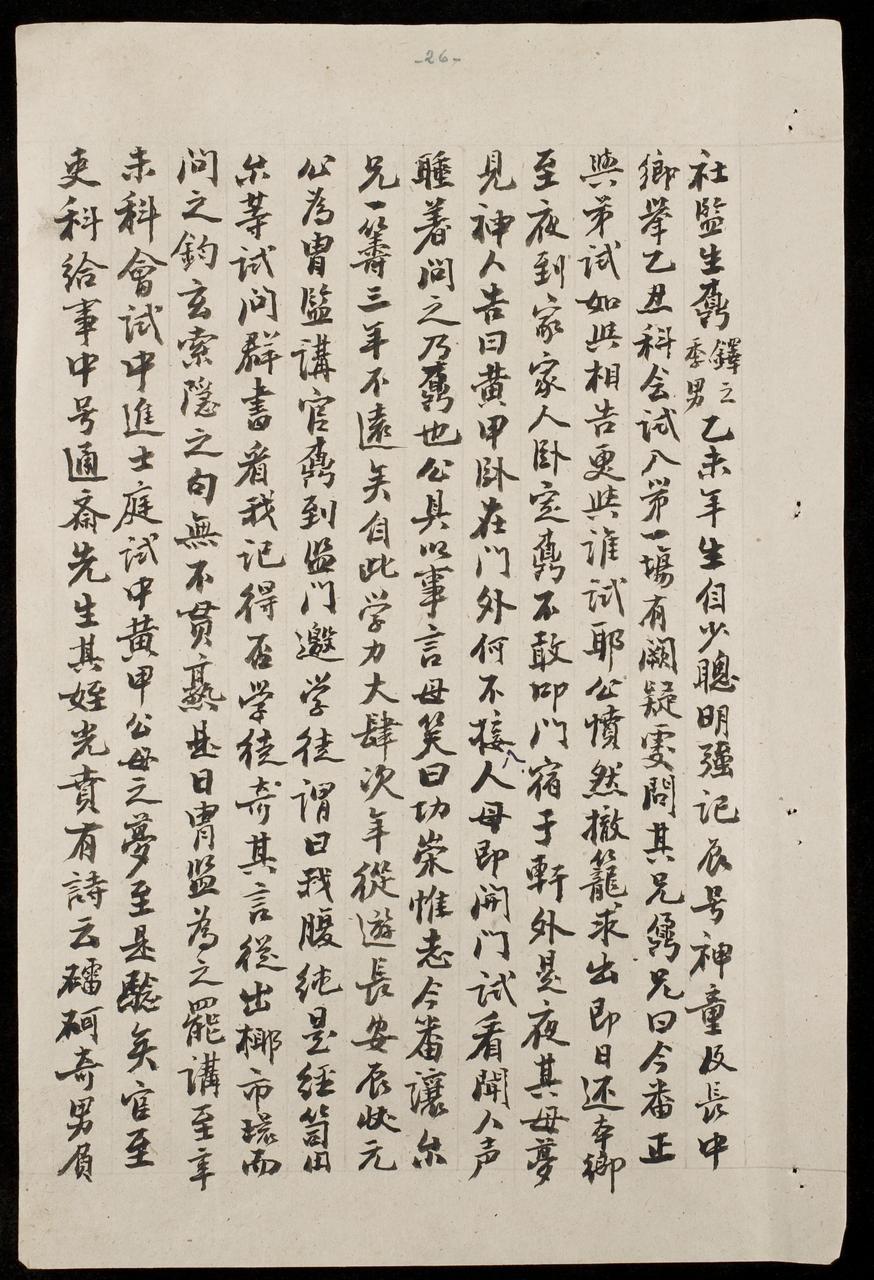 -26-
社監生鷮鐸之季男乙未年生自少聰明强记辰号神童及長中
鄉举乙丑科会試入第一塲有阙疑䖏問其兄鐫兄曰今畨正
與弟試如此相告更與誰試耶公憤然撤籠求出即日还本鄉
至夜到家家人卧定鷮不敢叩门宿于軒外是夜其母夢
見神人告曰黄甲卧在门外何不接入人母即開门試看聞人声
睡着问之乃鷮也公具以事言母笑曰功荣惟志今畨讓尔
兄一籌三年不遠矣自此学力大肆次年從遊長安辰状元
公為胄监講官鷮到监门邀学徒謂曰我腹純是經笥
尔等試问群書看我记得否学徒奇其言從出椰市環而
问之鈎玄索隐之句無不貫熟是日胄监為之罷講至辛
未科會試中進士庭試中黄甲公母之夢至是驗矣官至
吏科給事中号通斎先生其姪光賁有詩云礌砢奇男負